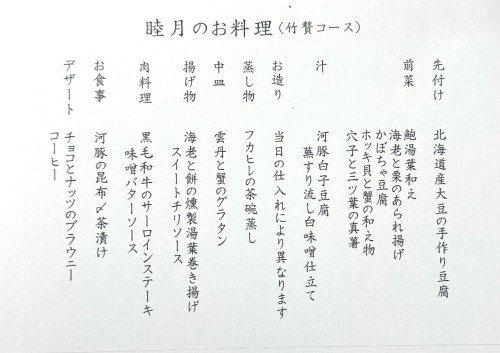 睦月のお料理(竹贅コース)
先付け
北海道産大豆の手作り豆腐
前菜
鮑湯葉和え
海老と栗のあられ揚げ
かぼちゃ豆腐
ホッキ貝と蟹の和え物
穴子と三ツ葉の真薯
汁
河豚白子豆腐
蕪すり流し白味噌仕立て
お造り
当日の仕入れにより異なります
蒸し物
フカヒレの茶碗蒸し
中皿
雲丹と蟹のグラタン
揚げ物
海老と餅の燻製湯葉巻き揚げ
スイートチリソース
肉料理
黒毛和牛のサーロインステーキ
味噌バターソース
お食事
河豚の昆布〆茶漬け
デザート
チョコとナッツのブラウニー
コーヒー